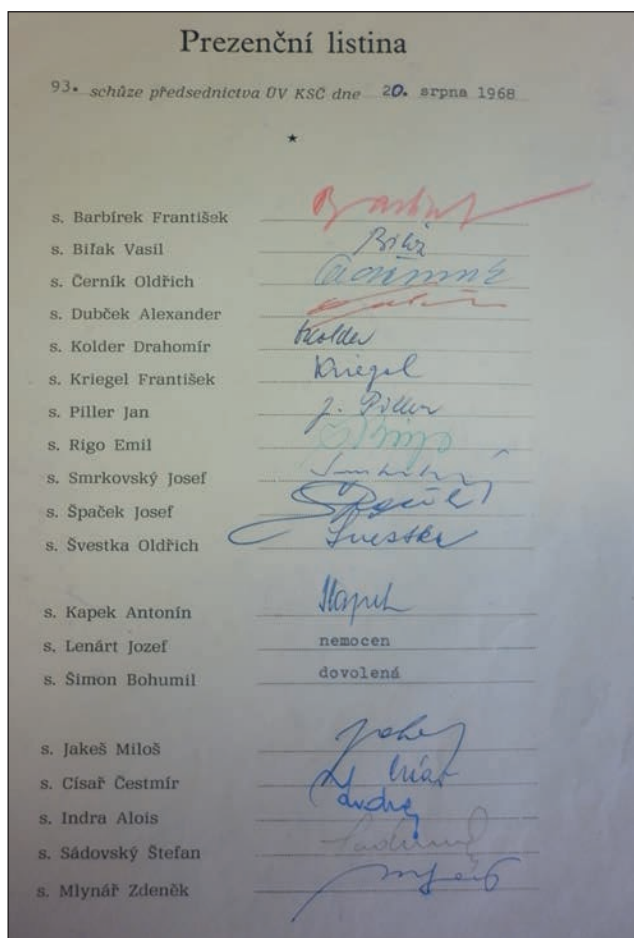 Prezenční listina
93. schůze předsednictva ÚV KSČ dne 20. srpna 1968
s. Barbírek František
s. Biľak Vasil Biľak
s. Černík Oldřich
s. Dubček Alexander
s. Kolder Drahomír Kolder
s. Kriegel František Kriegel
s. Piller Jan J. Piller
s. Rigo Emil
s. Smrkovský Josef
s. Špaček Josef
s. Švestka Oldřich Švestka
s. Kapek Antonín Kapek
s. Lenárt Jozef nemocen
s. Šimon Bohumil dovolená
s. Jakeš Miloš
s. Císař Čestmír
s. Indra Alois Indra
s. Sádovský Štefan
s. Mlynář Zdeněk